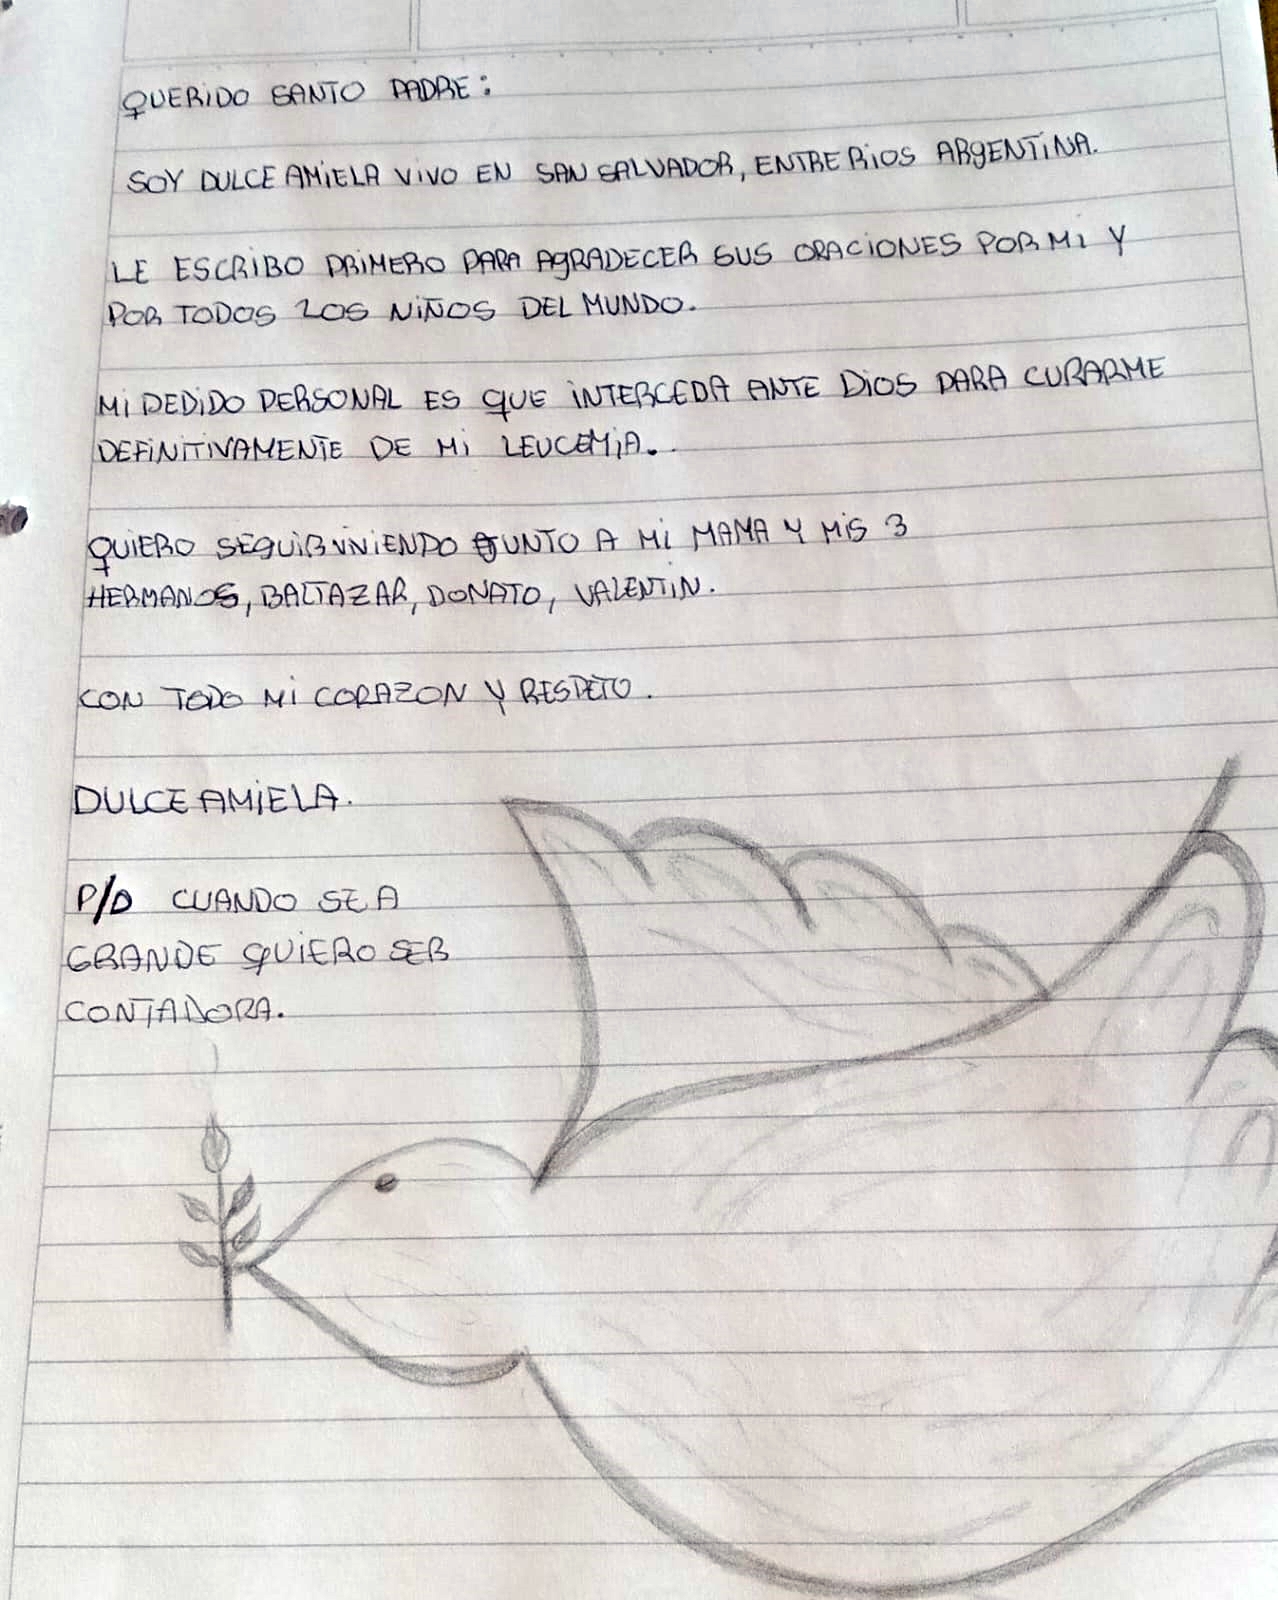 QUERIDO SANTO PADRE:
SOY DULCE AMIELA VIVO EN SAN SALVADOR, ENTRE RIOS ARGENTINA.
LE ESCRIBO PRIMERO PARA AGRADECER SUS ORACIONES POR MI Y
POR TODOS LOS NIÑOS DEL MUNDO.
MI PEDIDO PERSONAL ES QUE INTERCEDA ANTE DIOS PARA CURARME
DEFINITIVAMENTE DE MI LEUCEMIA.
QUIERO SEGUIR VIVIENDO JUNTO A MI MAMA Y MIS 3
HERMANOS, BALTAZAR, DONATO, VALENTIN.
CON TODO MI CORAZON Y RESPETO.
DULCE AMIELA.
P/D CUANDO SEA
GRANDE QUIERO SER
CONTADORA.